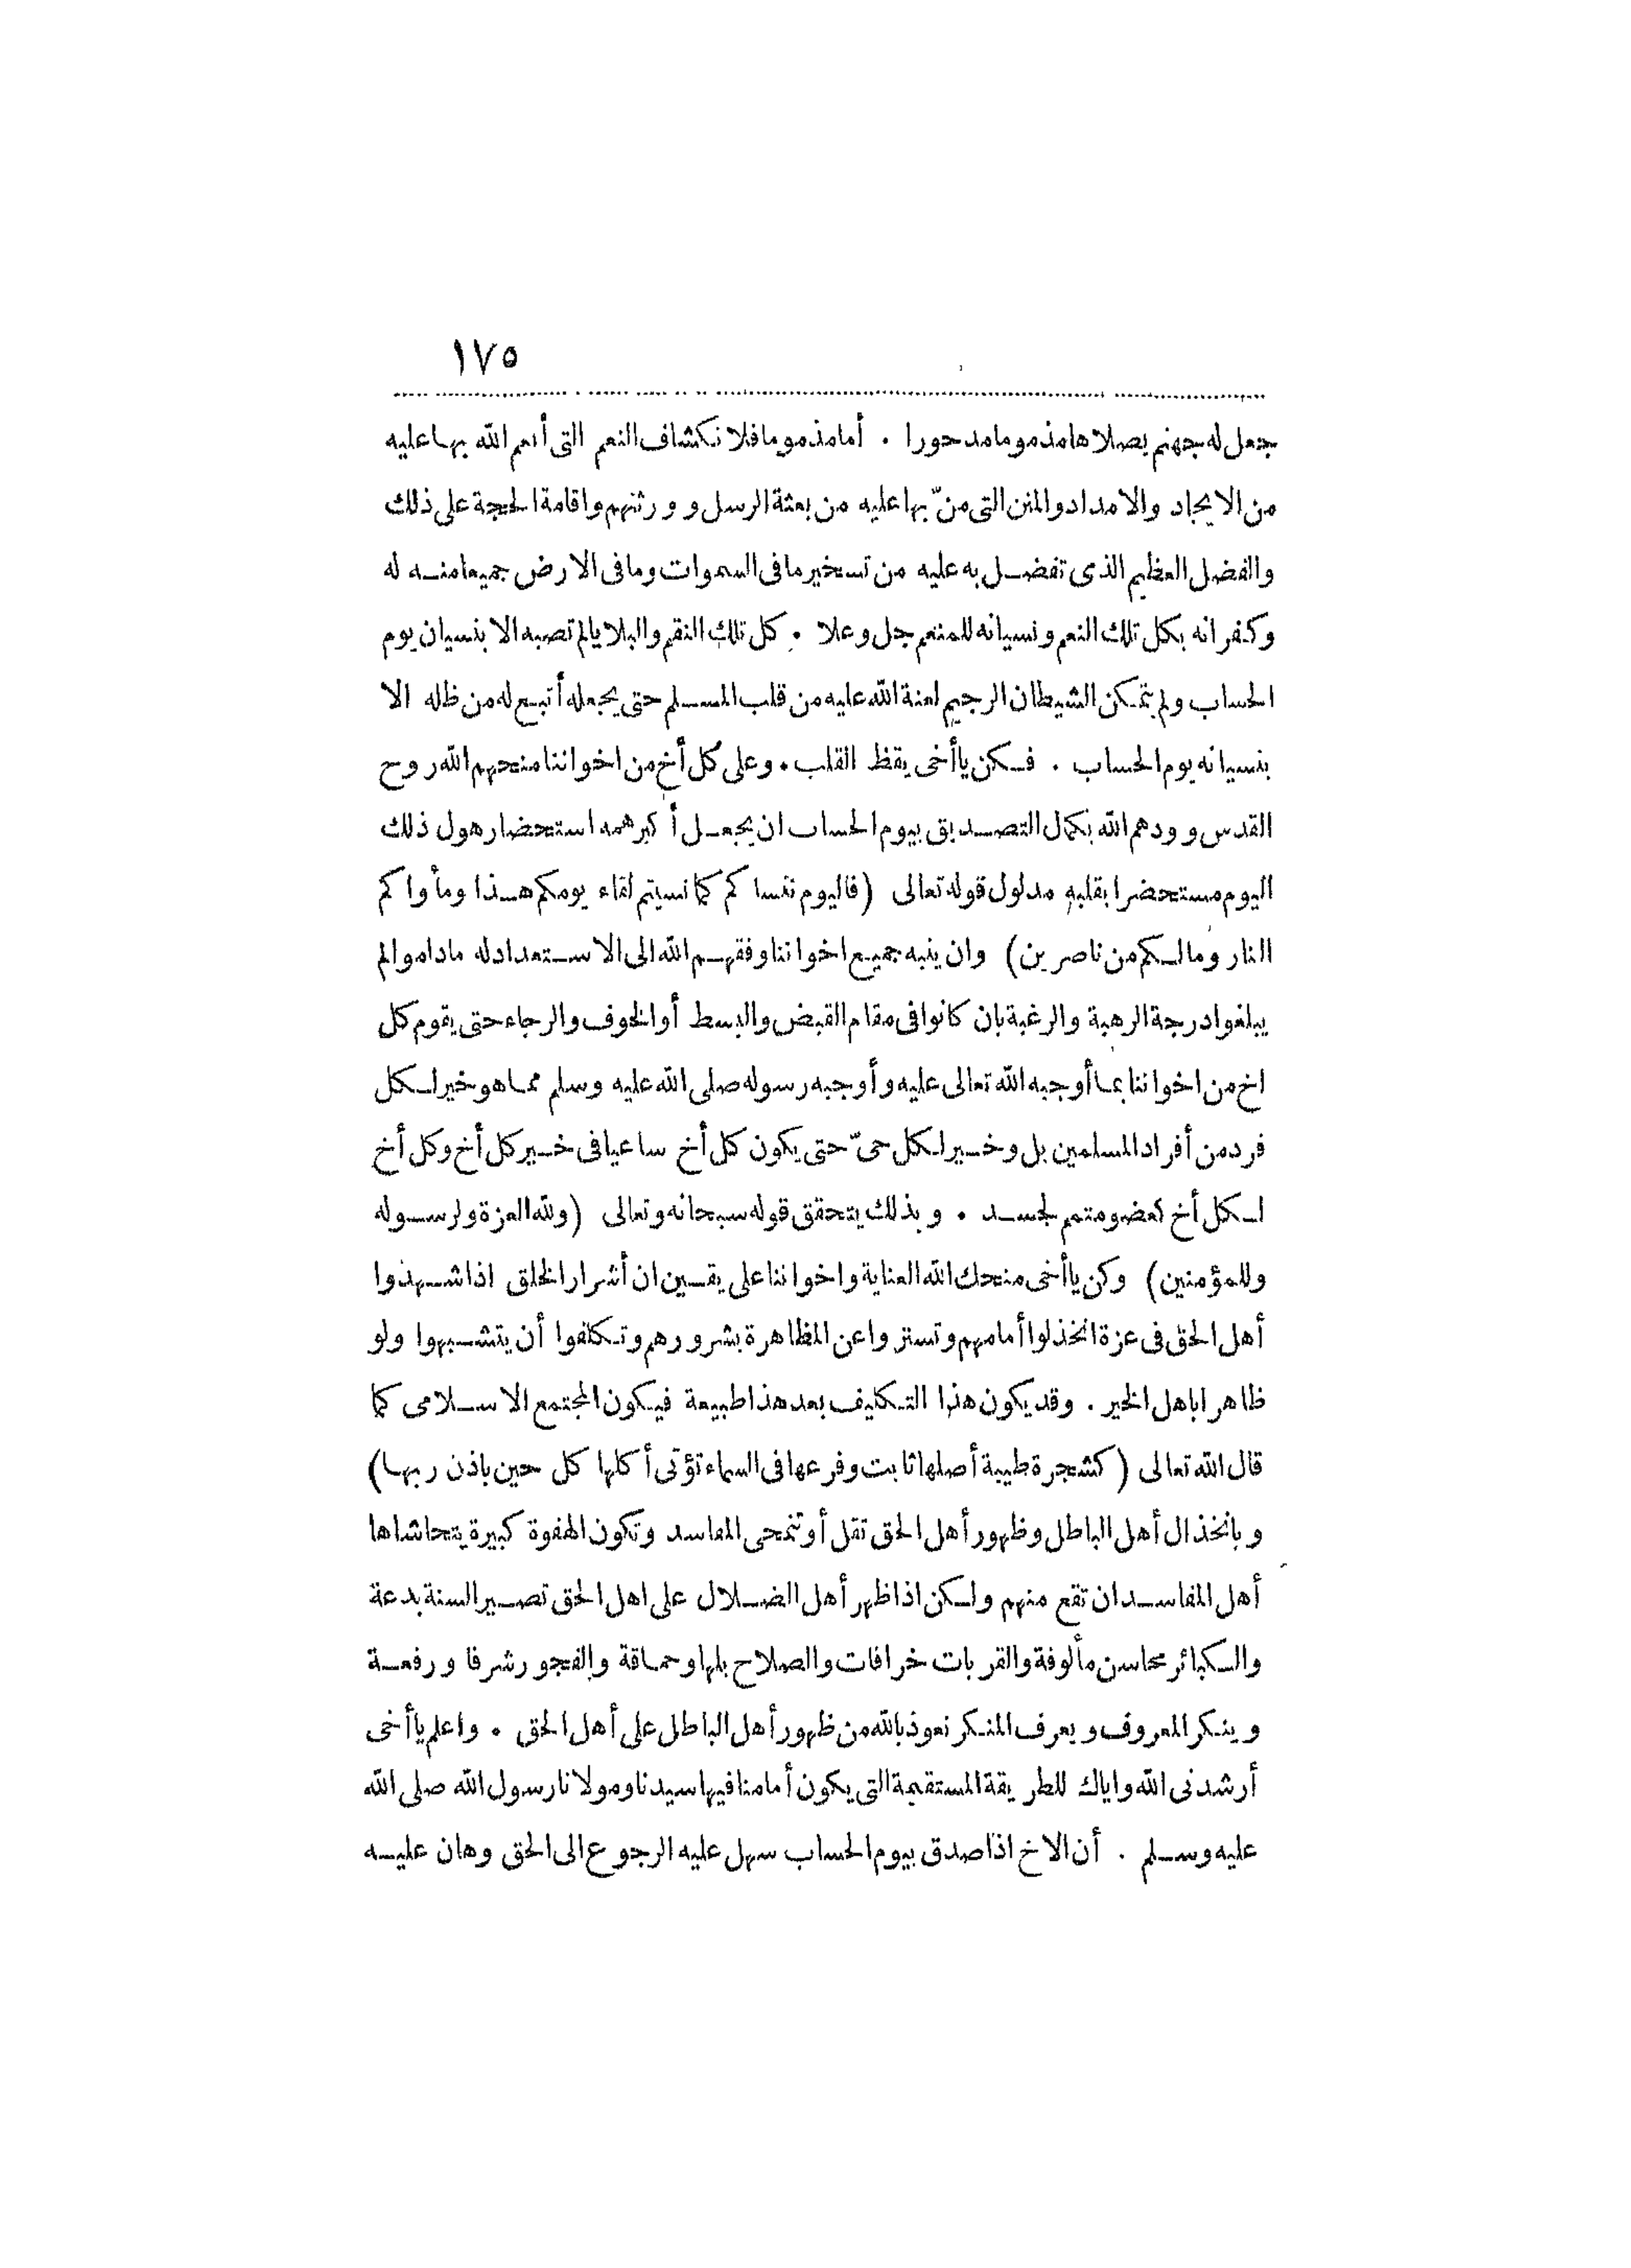 ١٧٥
جعل له جهنم يصلاها مذموما مدحورا . أما مذموما فلا نكشاف النعم التى أنعم الله بها عليه
من الايجاد والامداد والمنن التى منّ بها عليه من بعثة الرسل وورثتهم واقامة الحجة على ذلك
والفضل العظيم الذى تفضل به عليه من تسخير مافى السموات ومافى الارض جميعا منه له
وكفرانه بكل تلك النعم ونسيانه للمنعم جل وعلا . كل تلك النقم والبلايا لم تصبه الا بنسيان يوم
الحساب ولم يتمكن الشيطان الرجيم لعنة الله عليه من قلب المسلم حتى يجعله أتبع له من ظله الا
بنسيانه يوم الحساب . فكن ياأخى يقظ القلب . وعلى كل أخ من اخواننا منحهم الله روح
القدس وودهم الله بكمال التصديق بيوم الحساب ان يجعل أكبر همه استحضار هول ذلك
اليوم مستحضرا بقلبه مدلول قوله تعالى (فاليوم ننساكم كما نسيتم لقاء يومكم هذا ومأواكم
النار ومالكم من ناصرين) وان ينبه جميع اخواننا وفقهم الله الى الاستعداد له ماداموا لم
يبلغوا درجة الرهبة والرغبة بان كانوا فى مقام القبض والبسط أو الخوف والرجاء حتى يقوم كل
اخ من اخواننا بما أوجبه الله تعالى عليه وأوجبه رسوله صلى الله عليه وسلم مما هو خير لكل
فرد من أفراد المسلمين بل وخير لكل حىّ حتى يكون كل أخ ساعيا فى خير كل أخ وكل أخ
لكل أخ كعضو متمم لجسد . وبذلك يتحقق قوله سبحانه وتعالى (ولله العزة ولرسوله
وللمؤمنين) وكن ياأخى منحك الله العناية واخواننا على يقين ان أشرار الخلق اذا شهدوا
أهل الحق فى عزة انخذلوا أمامهم وتستروا عن المظاهرة بشرورهم وتكلفوا أن يتشبهوا ولو
ظاهرا باهل الخير . وقد يكون هذا التكليف بعد هذا طبيعة فيكون المجتمع الاسلامى كما
قال الله تعالى (كشجرة طيبة أصلها ثابت وفرعها فى السماء تؤتى أكلها كل حين باذن ربها)
وبانخذال أهل الباطل وظهور أهل الحق تقل أو تنمحى المفاسد وتكون الهفوة كبيرة يتحاشاها
أهل المفاسد ان تقع منهم ولكن اذا ظهر أهل الضلال على اهل الحق تصير السنة بدعة
والكبائر محاسن مألوفة والقربات خرافات والصلاح بلها وحماقة والفجور شرفا ورفعة
وينكر المعروف ويعرف المنكر نعوذ بالله من ظهور أهل الباطل على أهل الحق . واعلم ياأخى
أرشدنى الله واياك للطريقة المستقيمة التى يكون أمامنا فيها سيدنا ومولانا رسول الله صلى الله
عليه وسلم . أن الاخ اذا صدق بيوم الحساب سهل عليه الرجوع الى الحق وهان عليه